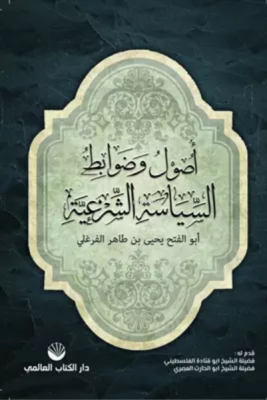 أصول وضوابط
السياسة الشرعية
أبو الفتح يحيى بن طاهر الفرغلي
قدم له:
فضيلة الشيخ ابو قتادة الفلسطيني
فضيلة الشيخ ابو الحارث المصري
دار الكتاب العالمي